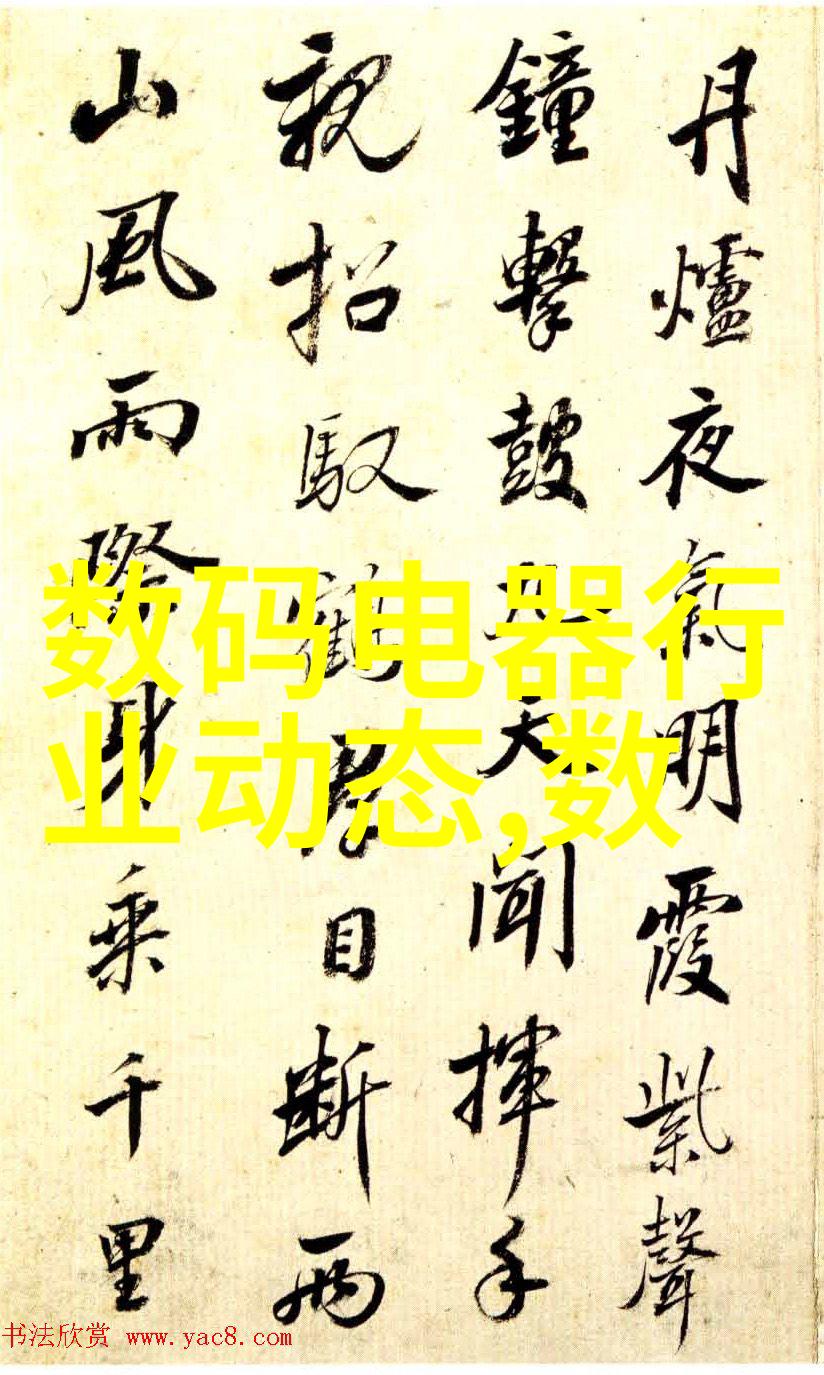 月爐夜氣明霞紫聲
鐘擊鼓九天聞揮手
親招馭鶴君目斷兩
山風雨際身乘千里
数码电器行
业动态,数
书法欣赏 www.yac8.com